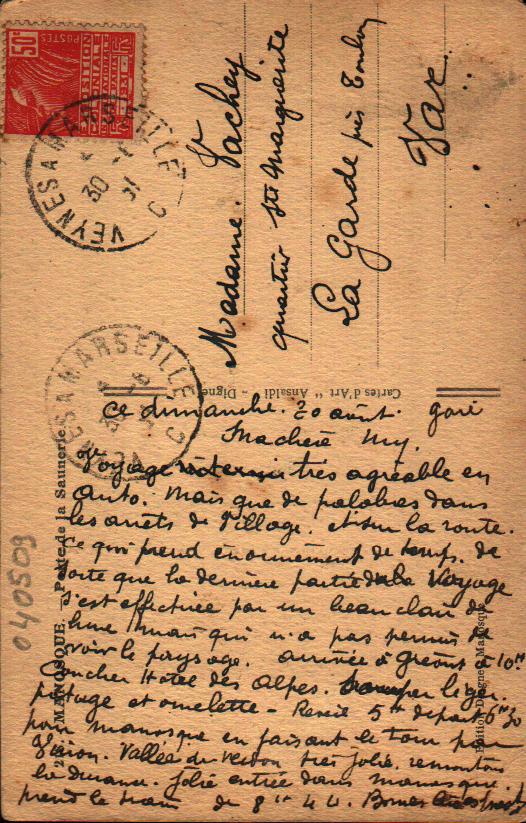 50c
POSTES
VEYNES A MARSEILLE
30
31
C
Madame Vachey
quartier Ste Marguerite
La Garde près Toulon
Var
VEYNES A MARSEILLE
Cartes d'Art "Ansaldi" - Digne
MANOSQUE. — Porte de la Saunerie
040509
Ce dimanche. 30 août. gare
Ma chère My.
Voyage très agréable en
auto. Mais que de palabres dans
les arrêts de village. et sur la route.
Ce qui prend énormément de temps. de
sorte que la dernière partie de la Voyage
s'est effectuée par un beau clair de
lune mais qui n'a pas permis de
voir le paysage. arrivée à Gréoux à 10h
Coucher Hotel des Alpes. léger.
potage et omelette - Reveil 5h depart 6h30
pour manosque en faisant le tour par
Vinon. Vallée du Verdon très jolie. remontons
la durance. Jolie entrée dans manosque.
prend le train de 8h 44. Bonnes